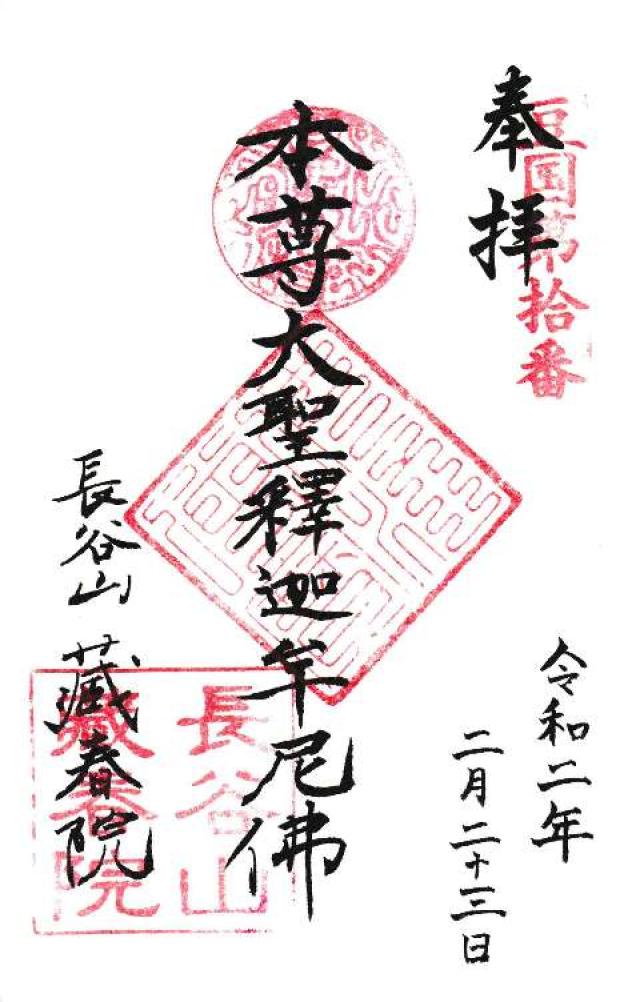 奉拝
豆国第拾番
令和二年
二月二十三日
本尊大聖釋迦牟尼佛
長谷山 藏春院
長谷山
藏春院